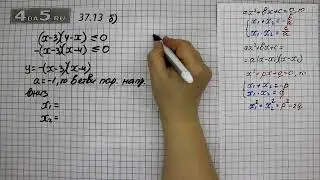 4DO5.RU
37.13 б)
(x-3)(4-x) ≤ 0
-(x-3)(x-4) ≤ 0
y=-(x-3)(x-4)
a=-1, то ветви пар. напр.
вниз
x₁=
x₂=
ax²+bx+c=0, то
{x₁+x₂=-b/a
x₁·x₂=c/a
ax²+bx+c=
=a(x-x₁)(x-x₂)
x²+px+q=0, то
{x₁+x₂=-p
x₁·x₂=q
x₁²+x₂²=p²-2q